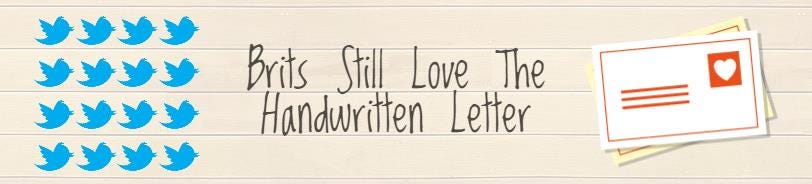 Brits Still Love The
Handwritten Letter